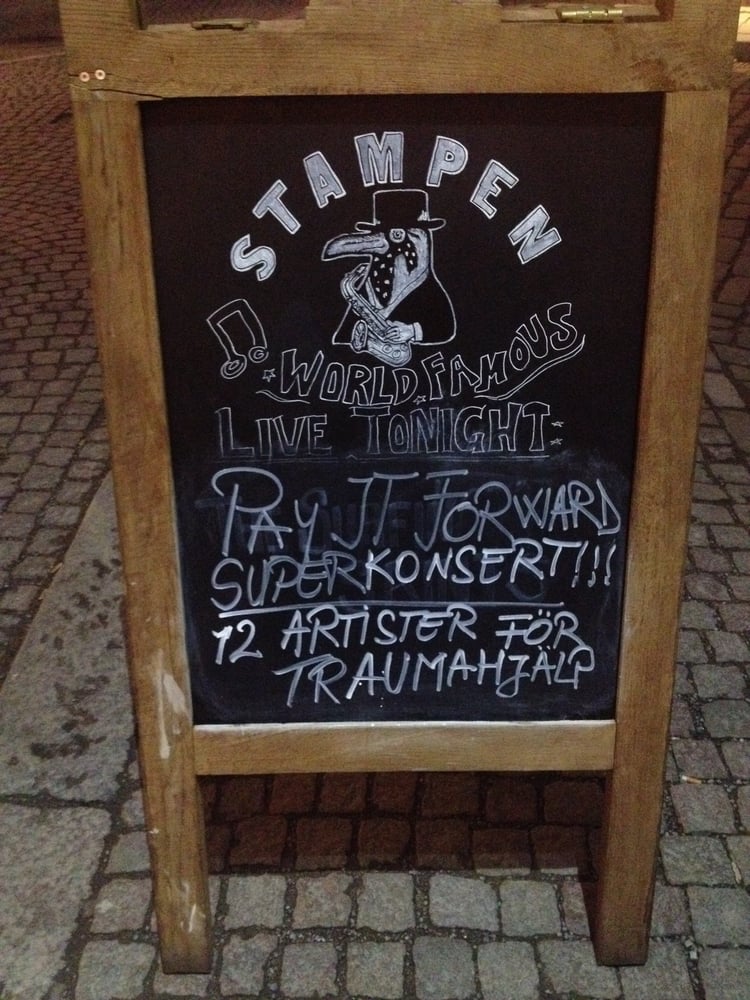 STAMPEN
WORLD FAMOUS
LIVE TONIGHT
PAY IT FORWARD
SUPERKONSERT!!!
12 ARTISTER FÖR
TRAUMAHJÄLP